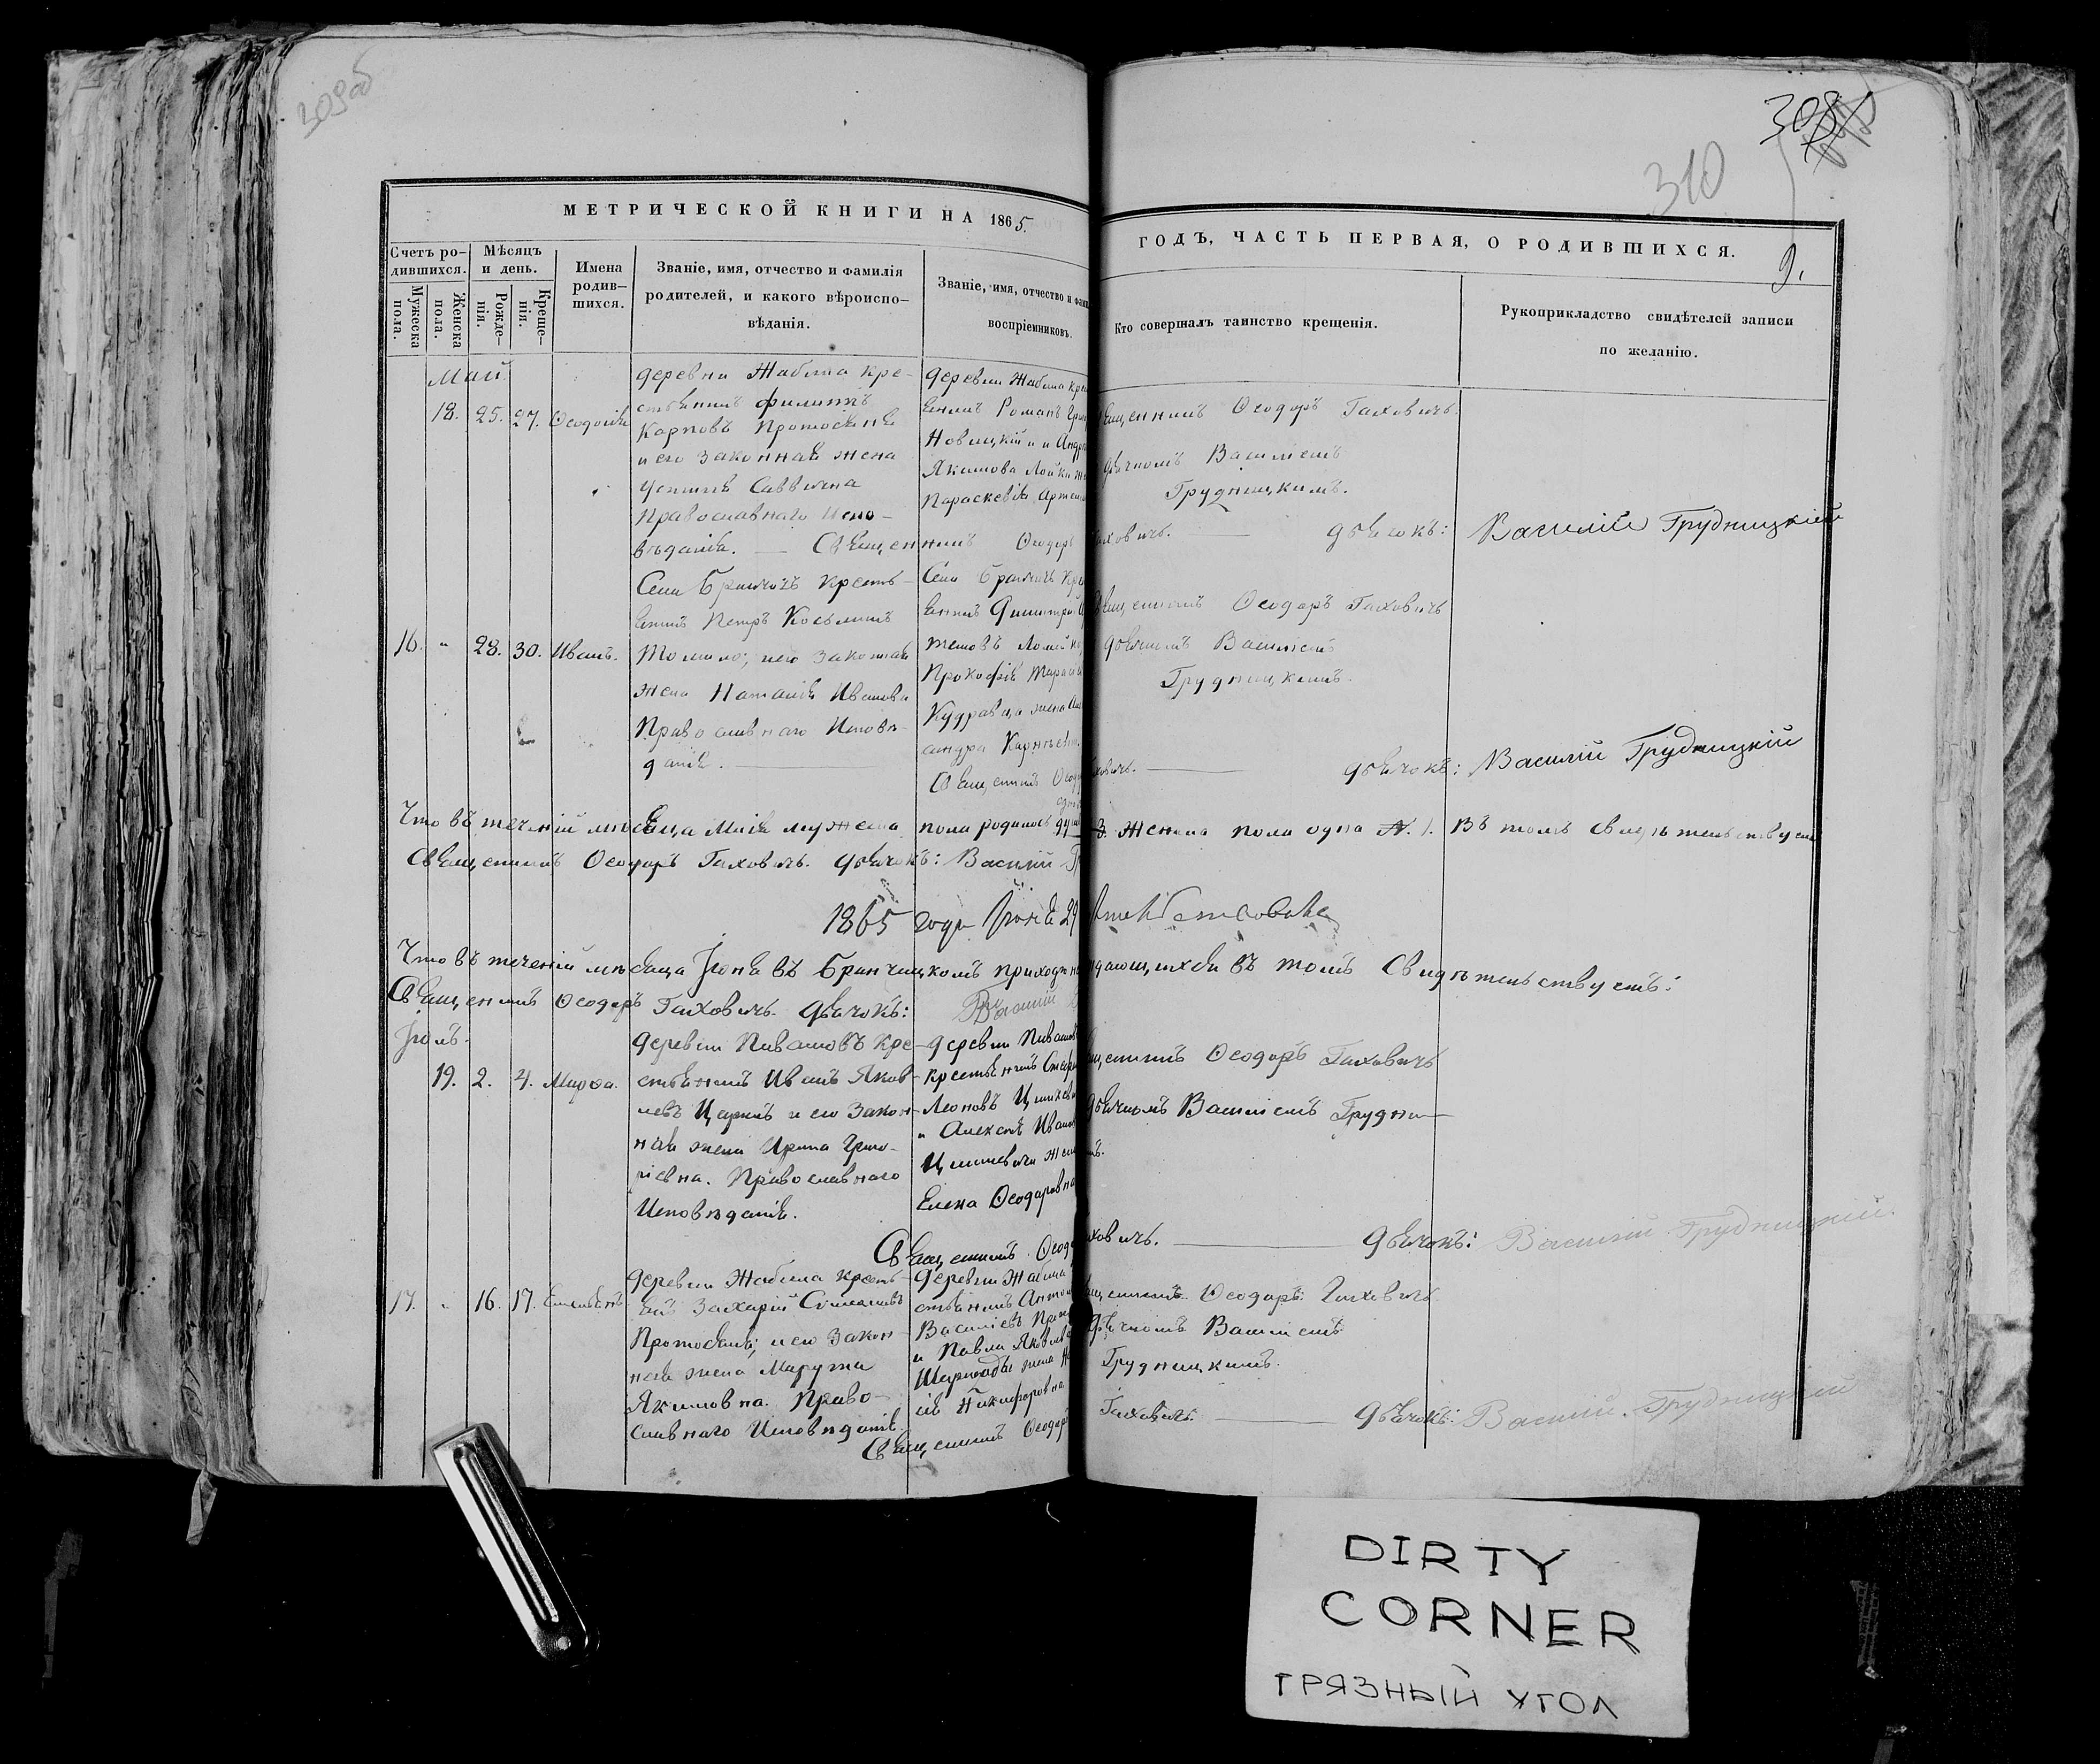 309об
308
310
9.
МЕТРИЧЕСКОЙ КНИГИ НА 1865.
ГОДЪ, ЧАСТЬ ПЕРВАЯ, О РОДИВШИХСЯ.
Счетъ ро-
дившихся.
Мужеска пола.
Женска пола.
Мѣсяцъ
и день.
Рожде-
нія.
Креще-
нія.
Имена
родив-
шихся.
Званіе, имя, отчество и фамилія
родителей, и какого вѣроиспо-
вѣданія.
Званіе, имя, отчество и фами
воспріемниковъ.
Кто совершалъ таинство крещенія.
Рукоприкладство свидѣтелей записи
по желанію.
Май
18. 25. 27. Ѳеодосія
деревни Жабина кре-
стьянинъ Филиппъ
Карповъ Протосеня
и его законная жена
Устинія Саввична
Православнаго Испо-
вѣданія.
деревни Жабина кре
янинъ Романъ
Новицкій и Андр
Якимова Лойки же
Параскевія Артем
щенникъ Ѳеодоръ Гаховичъ
дьячкомъ Василіемъ
Грудницкимъ.
Священникъ Ѳеодоръ Гаховичъ. дьячокъ: Василій Грудницкій
16. " 28. 30. Иванъ.
Села Бранчичъ кресть-
янинъ Петръ Косьминъ
Томило; и его законная
жена Наталія Иванова
Православнаго Исповѣ-
данія.
Села Бранчичъ Кре
янинъ Димитрій
Прокофія Тарасі
Кудравца жена
андра Карнѣева
щенникъ Ѳеодоръ Гаховичъ
дьячкомъ Василіемъ
Грудницкимъ.
Священникъ Ѳеодо ховичъ. дьячокъ: Василій Грудницкій
Что въ теченіи мѣсяца Маія мужеска пола родилось 3. женска пола одна N. 1. Въ томъ свидѣтельствуемъ
Священникъ Ѳеодоръ Гаховичъ. дьячокъ: Василій Гр
1865 года Іюня 29
Что въ теченіи мѣсяца Іюня въ Бранчицкомъ приходѣ не дающихся въ томъ Свидѣтельствуемъ:
Священникъ Ѳеодоръ Гаховичъ. дьячокъ: Василій
Іюль.
19. 2. 4. Марѳа.
деревни Пивашовъ кре-
стьянинъ Иванъ Яков-
левъ Царикъ и его закон-
ная жена Ирина Григо-
ріевна. Православнаго
Исповѣданія.
деревни Пивашов
крестьянинъ Стеф
Леоновъ
и Алексѣя Иван
жен
Елена Ѳеодоровна
щенникъ Ѳеодоръ Гаховичъ
дьячкомъ Василіемъ Грудни-
Священникъ Ѳеодо ховичъ. дьячокъ: Василій Грудницкій.
17. " 16. 17. Емельянъ.
деревни Жабина кресть-
янъ Захарій Симеоновъ
Протосеня; и его закон-
ная жена Марута
Якимовна. Право-
славнаго Исповѣданія.
деревни Жабина
стьянинъ Антон
Василіевъ Прот
и Павла Яковлева
жена
Никифоровна
щенникъ Ѳеодоръ Гаховичъ
дьячкомъ Василіемъ
Грудницкимъ.
Священникъ Ѳеодоръ Гаховичъ. дьячокъ: Василій Грудницкій
DIRTY
CORNER
ГРЯЗНЫЙ УГОЛ